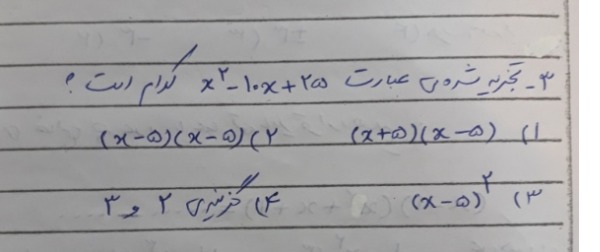 ۳- تجزیه شده‌ی عبارت x²-۱۰x+۲۵ کدام است ؟
۱) (x+۵)(x-۵) ۲) (x-۵)(x-۵)
۳) (x-۵)² ۴) گزینه‌ی ۲ و ۳